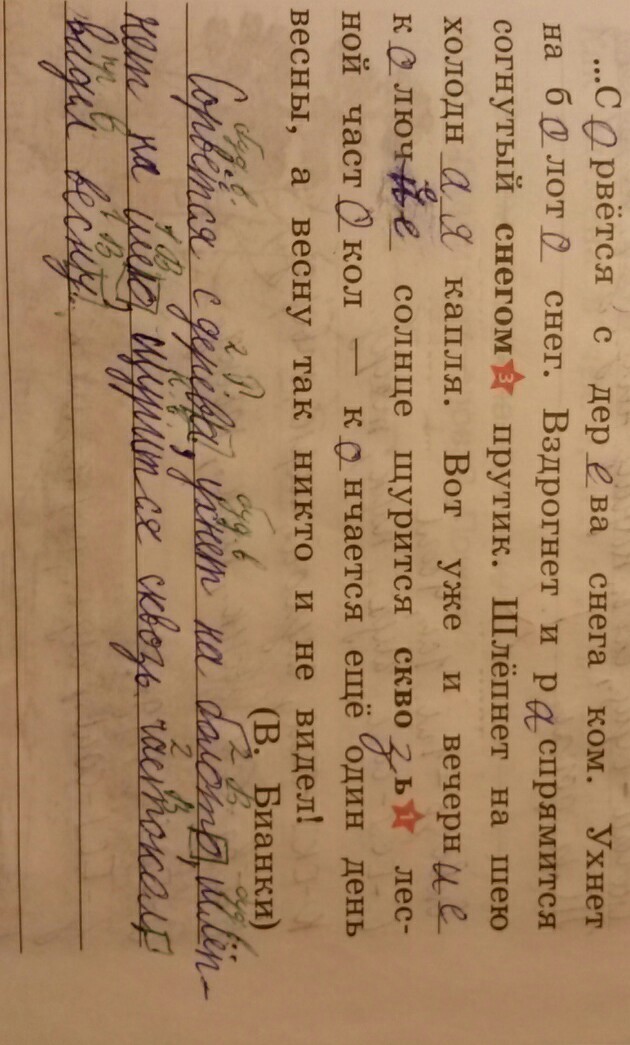 ...Сорвётся с дерева снега ком. Ухнет
на болото снег. Вздрогнет и распрямится
согнутый снегом3 прутик. Шлёпнет на шею
холодная капля. Вот уже и вечерние
колючее солнце щурится сквозь1 лес-
ной частокол — кончается ещё один день
весны, а весну так никто и не видел!
(В. Бианки)
буд.в. 2 Р. буд.в буд.в
Сорвётся с дерева, ухнет на болото, шлёп-
1 В. н.в. 2 В. 2 В.
нет на шею, щурится сквозь частокол,
пр.в 1 В.
видел весну.